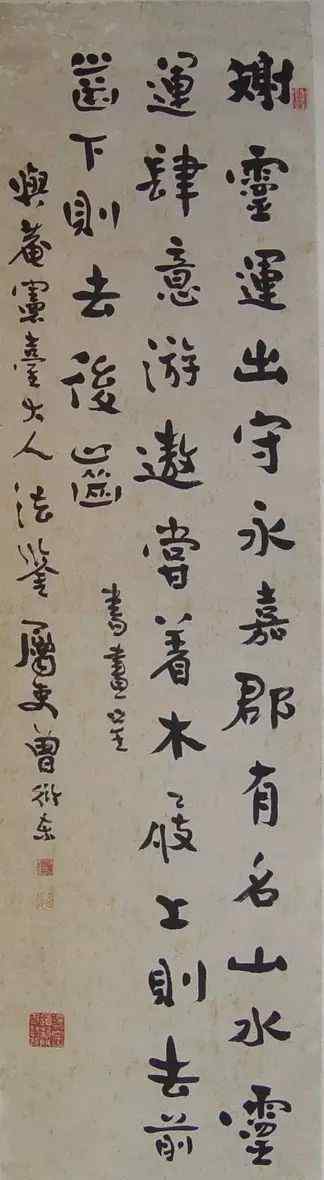 謝靈運出守永嘉郡有名山水靈
運肆意游遨當着木屐上則去前
齒下則去後齒
書畫
與菴憲臺大人法鑒屬吏曾衍東